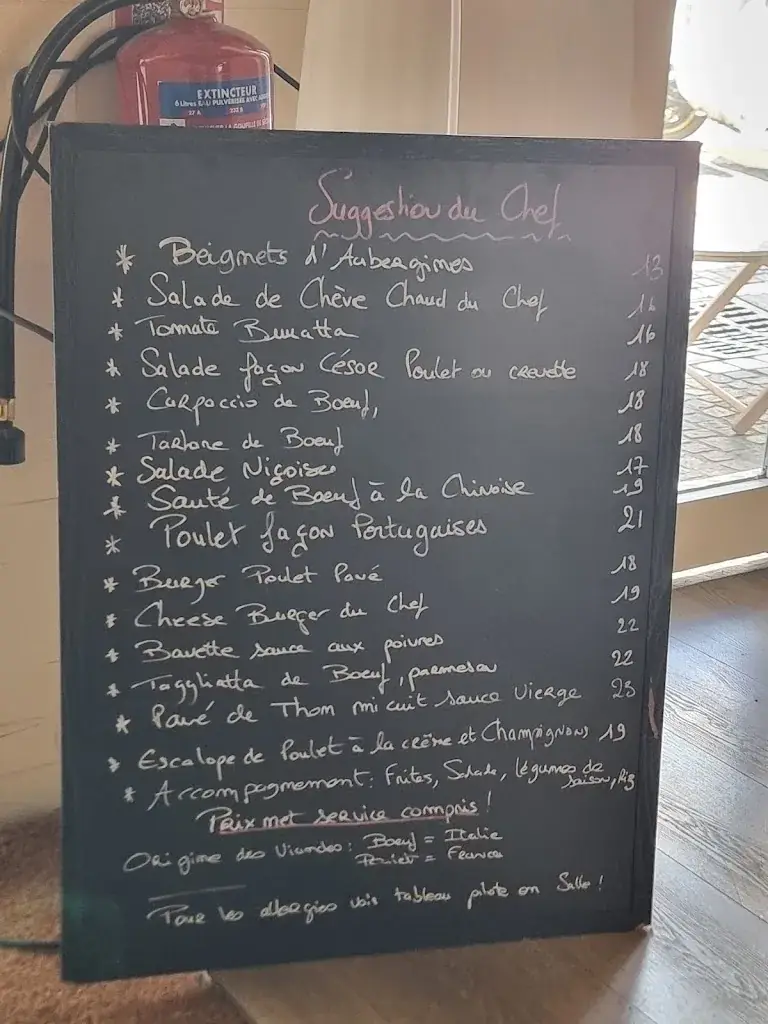 EXTINCTEUR
6 Litres EAU PULVERISEE AVEC
27 A 233 B
Suggestion du Chef
* Beignets d'Aubergines 13
* Salade de Chève Chaud du Chef
* Tomate Buratta 16
* Salade façon César Poulet ou crevette 18
* Carpaccio de Boeuf, 18
* Tartare de Boeuf 18
* Salade Niçoise 17
* Sauté de Boeuf à la Chinoise 19
* Poulet façon Portugaises 21
* Burger Poulet Pané 18
* Cheese Burger du Chef 19
* Bavette sauce aux poivres 22
* Taggliatta de Boeuf, parmesan 22
* Pavé de Thom mi cuit sauce Vierge 23
* Escalope de Poulet à la crème et Champignons 19
* Accompagnement: Frites, Salade, légumes de
saison, Riz
Prix net service compris!
Origine des Viandes: Boeuf = Italie
Poulet = France
Pour les allergies voir tableau pilote en Salle!